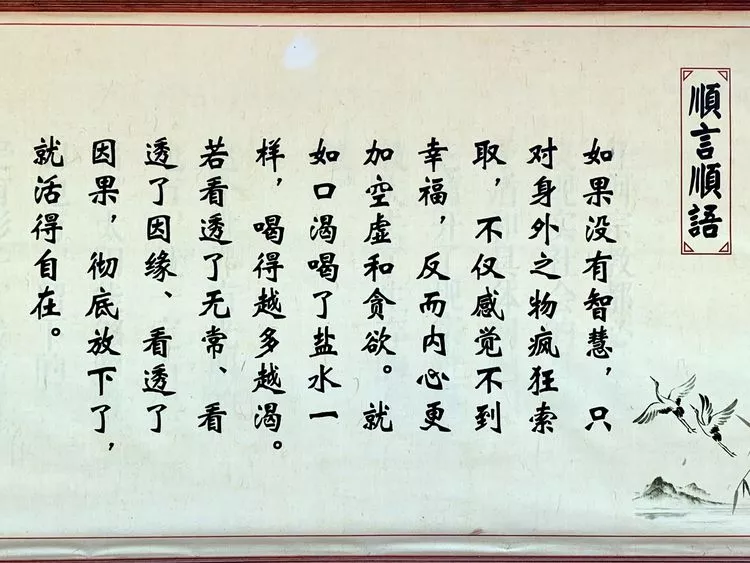 順言順語
如果没有智慧，只
对身外之物疯狂索
取，不仅感觉不到
幸福，反而内心更
加空虚和贪欲。就
如口渴喝了盐水一
样，喝得越多越渴。
若看透了无常、看
透了因缘、看透了
因果，彻底放下了，
就活得自在。